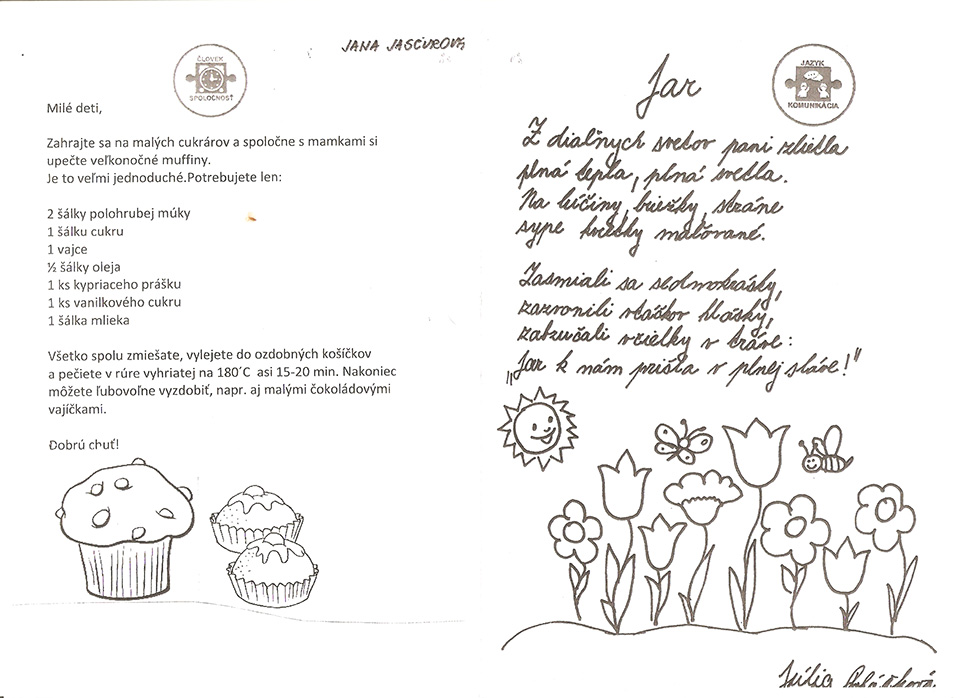 JANA JASČUROVÁ
ČLOVEK
SPOLOČNOSŤ
Milé deti,
Zahrajte sa na malých cukrárov a spoločne s mamkami si
upečte veľkonočné muffiny.
Je to veľmi jednoduché.Potrebujete len:
2 šálky polohrubej múky
1 šálku cukru
1 vajce
½ šálky oleja
1 ks kypriaceho prášku
1 ks vanilkového cukru
1 šálka mlieka
Všetko spolu zmiešate, vylejete do ozdobných košíčkov
a pečiete v rúre vyhriatej na 180´C asi 15-20 min. Nakoniec
môžete ľubovoľne vyzdobiť, napr. aj malými čokoládovými
vajíčkami.
Dobrú chuť!
Jar
JAZYK
KOMUNIKÁCIA
Z diaľnych svetov pani zlietla
plná tepla, plná svetla.
Na lúčiny, briežky, stráne
sype kvietky maľované.
Zasmiali sa sedmokrásky,
zazvonili vtáčkov hlásky,
zabzučali včielky v tráve:
„Jar k nám prišla v plnej sláve!"
Júlia